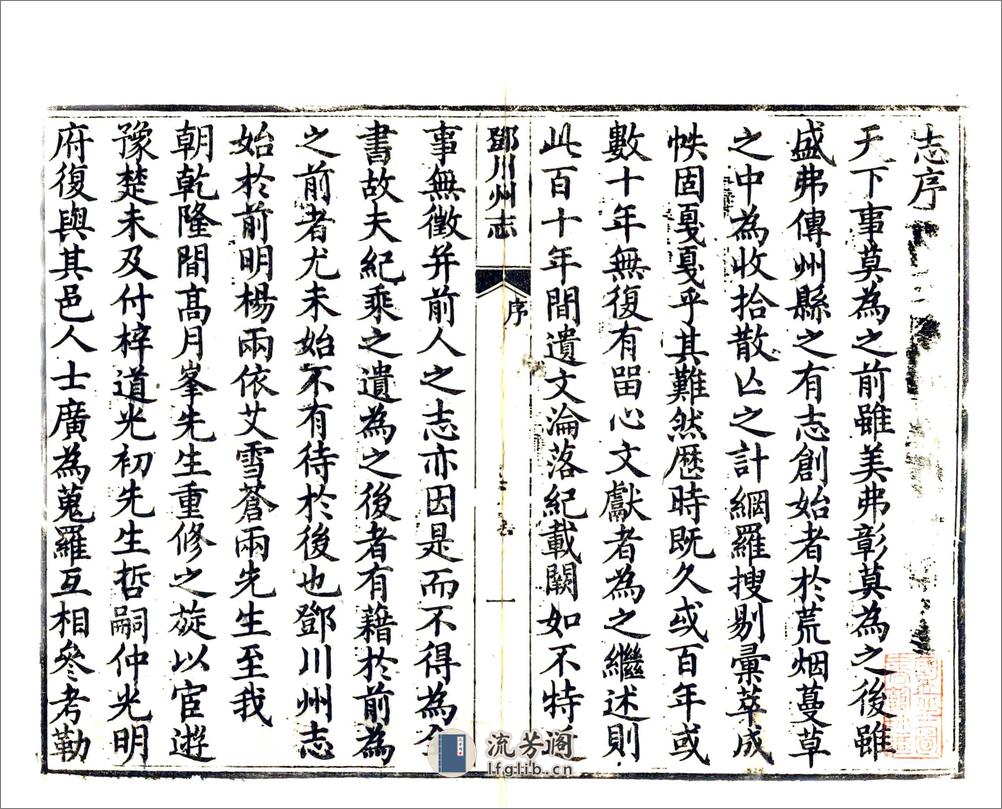 志序
天下事莫為之前雖美弗彰莫為之後雖
盛弗傳州縣之有志創始者於荒烟蔓草
之中為收拾散亾之計網羅搜剔彙萃成
帙固戛戛乎其難然歷時既久或百年或
數十年無復有畱心文獻者為之繼述則
此百十年間遺文淪落紀載闕如不特近
鄧川州志
序
一
事無徵并前人之志亦因是而不得為全
書故夫紀乘之遺為之後者有藉於前為
之前者尤未始不有待於後也鄧川州志
始於前明楊兩依艾雪蒼兩先生至我
朝乾隆間高月峯先生重修之旋以宦遊
豫楚未及付梓道光初先生哲嗣仲光明
府復與其邑人士廣為蒐羅互相參考勒
流芳阁
lfglib.cn